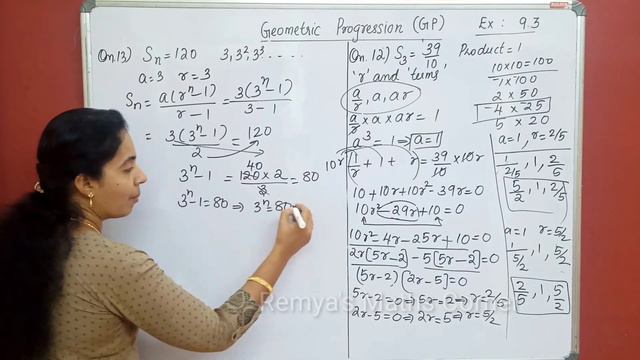 Geometric Progression (GP) Ex : 9.3
Qn.13) Sn = 120 3, 3², 3³ .....
a = 3 r = 3
Sn = a(rⁿ-1)/r-1 = 3(3ⁿ-1)/3-1
= 3(3ⁿ-1)/2 = 120
3ⁿ-1 = 120 × 2/3 = 80
40
3ⁿ-1 = 80 ⇒ 3ⁿ = 80
Qn.12) S₃ = 39/10, Product = 1
'r' and 'terms
a/r, a, ar
a/r × a × ar = 1
a³ = 1 ⇒ a = 1
10r[1/r + 1 + r] = 39/10 × 10r
10 + 10r + 10r² - 39r = 0
10r² - 29r + 10 = 0
10r² - 4r - 25r + 10 = 0
2r[5r-2] - 5[5r-2] = 0
(5r-2)(2r-5) = 0
5r-2 = 0 ⇒ 5r = 2 ⇒ r = 2/5
2r-5 = 0 ⇒ 2r = 5 ⇒ r = 5/2
10 × 10 = 100
-1 × 100
2 × 50
-4 × -25
5 × 20
a = 1, r = 2/5
1/2/5, 1, 2/5
5/2, 1, 2/5
a = 1 r = 5/2
1/5/2, 1, 5/2
2/5, 1, 5/2
Remya's Maths Corner